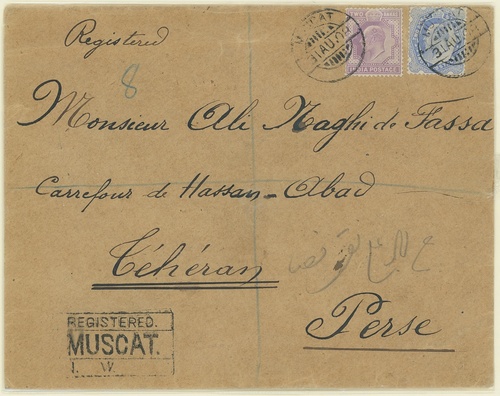 Registered
MUSCAT
31 AU 09
TWO ANNAS
INDIA POSTAGE
31 AU
8
Monsieur Ali Naghi de Fassa
Carrefour de Hassan-Abad
Téhéran
Perse
REGISTERED.
MUSCAT.